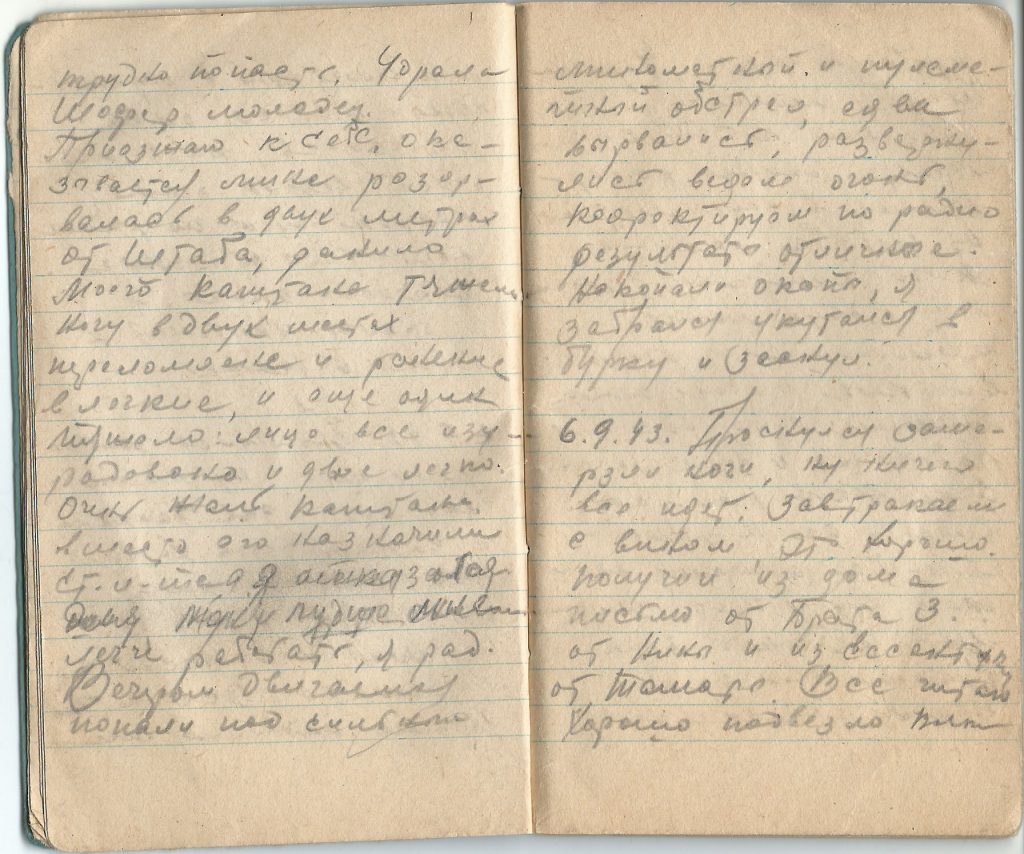 трудно попасть.
Шофер молодец.
Приезжаю к себе, ока-
зывается мина розор-
валась в двух метрах
от Штаба, ранило
Моего капитана тяжело
ногу в двух местах
переломано и ранение
в легкие, и еще один
тяжело: лицо все изу-
радовано и двое легко.
Очень жаль капитана.
вместо его назначили
ст. л-та я отказался
легче работать, я рад.
Вечером двигаемся
попали под сильный
минометный и пулеме-
тный обстрел, едва
вырвались, разверну-
лись ведем огонь,
корректируем по радио
результаты отличные.
Накопали окопы, я
забрался укутался в
бурку и заснул.
6.9.43. Проснулся заме-
рзли ноги, ну ничего
все идет. Завтракаем
с вином
получил из дома
письмо от Брата З.
от Нины и из
от Тамары. Все читаю
Хорошо подвезло